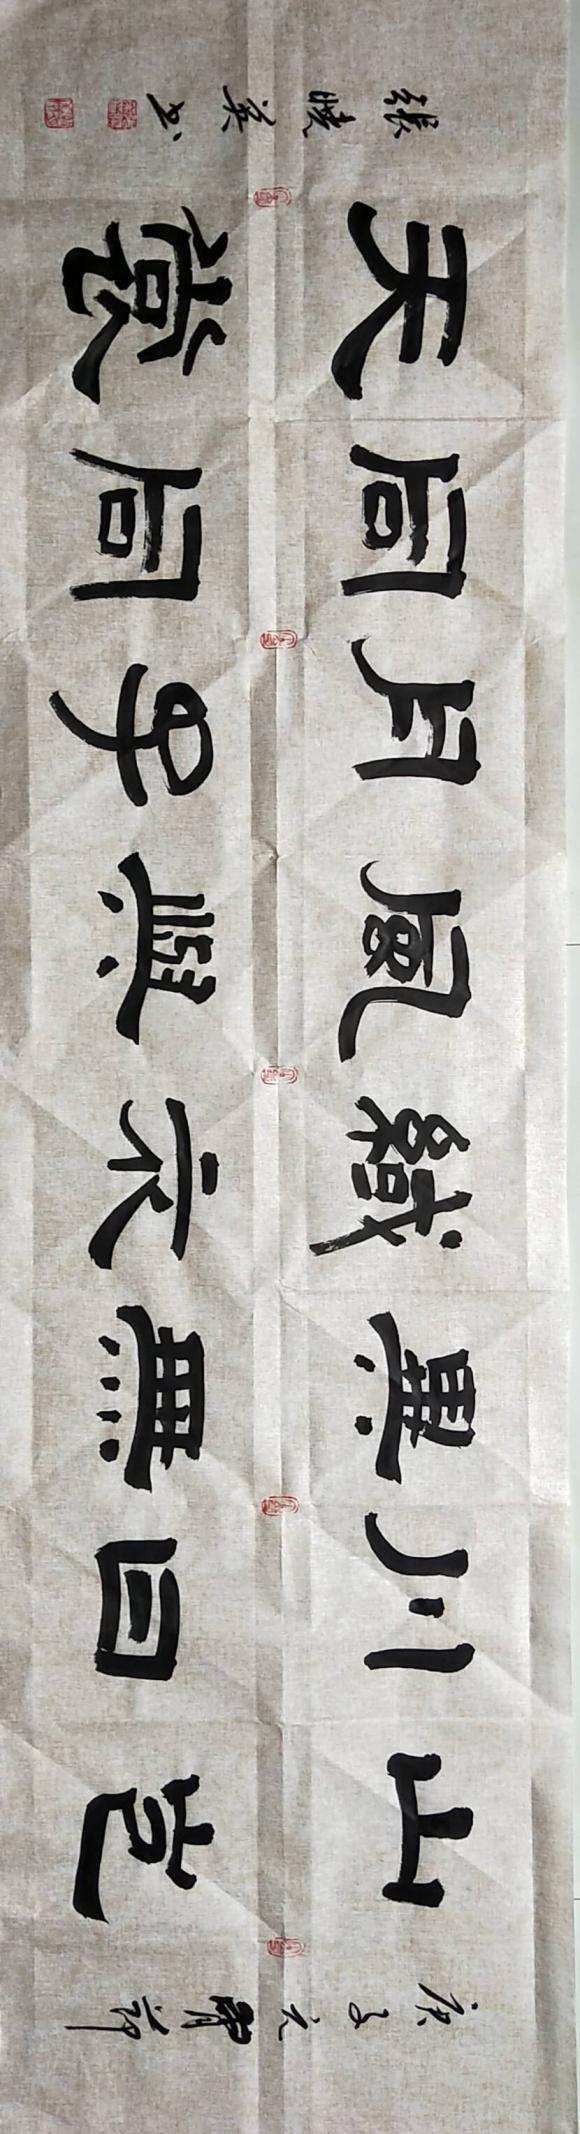 山川異域風月同天
豈曰無衣與子同裳
庚子元宵節
張曉英書